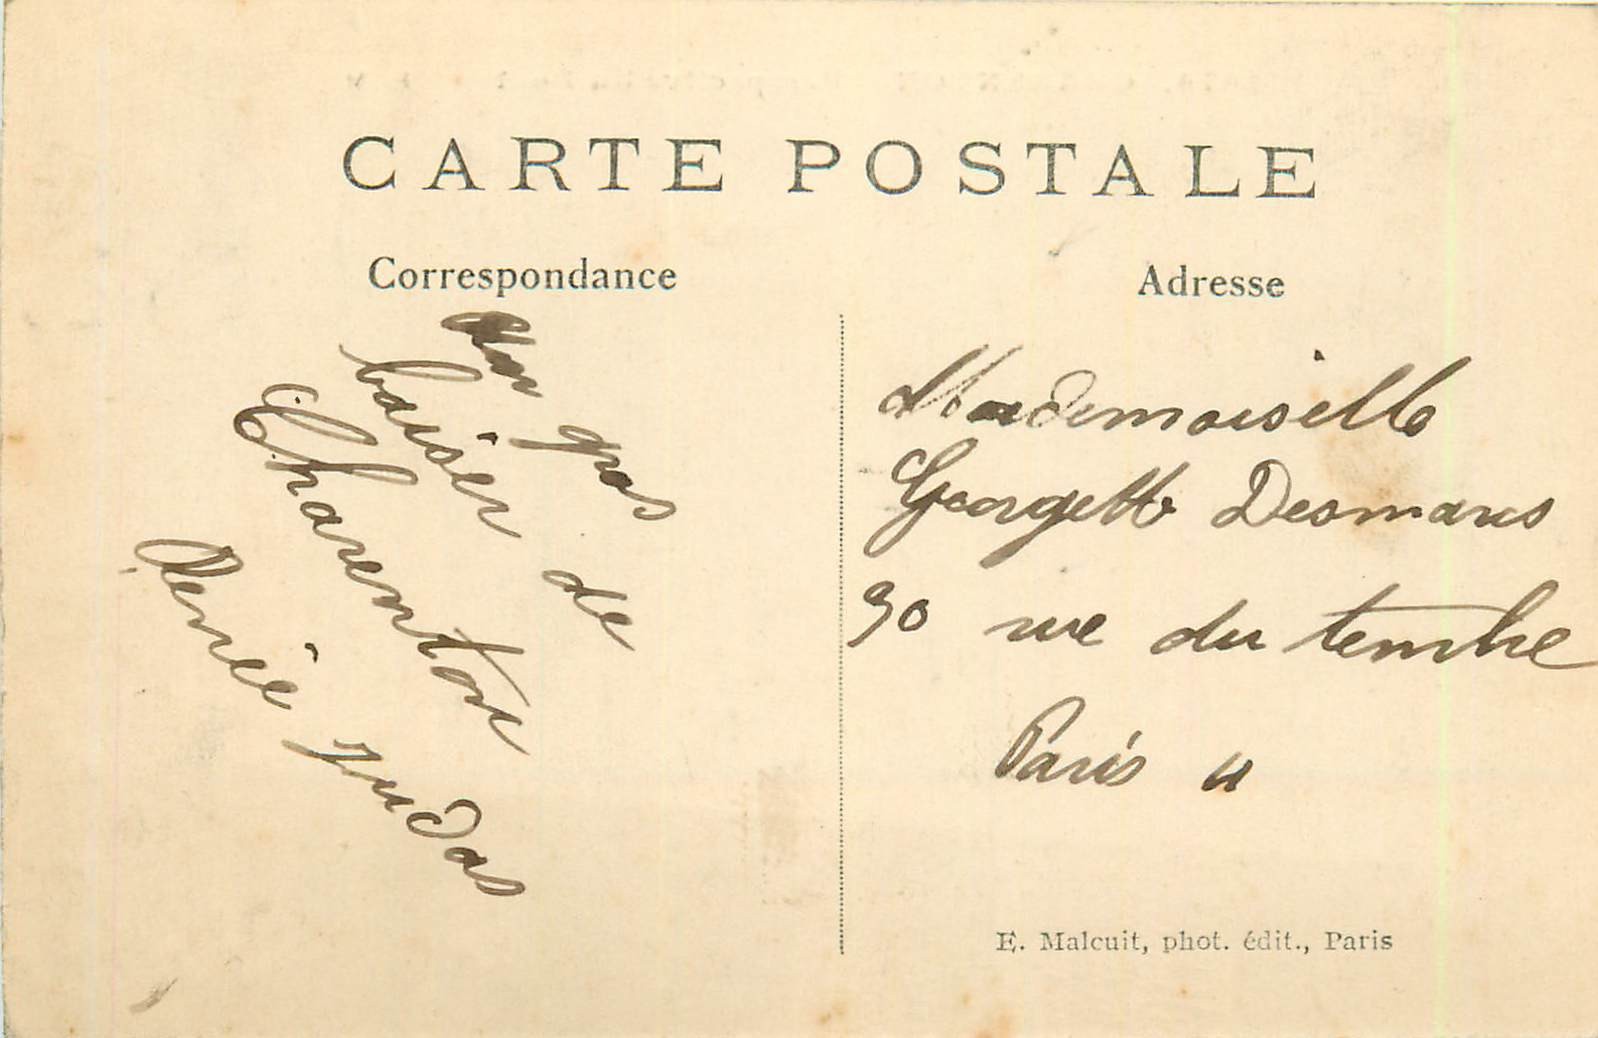 CARTE POSTALE
Correspondance
Un gros
baiser de
Charenton
Renée Judas
Adresse
Mademoiselle
Georgette Desmares
90 rue du temple
Paris
E. Malcuit, phot. édit., Paris